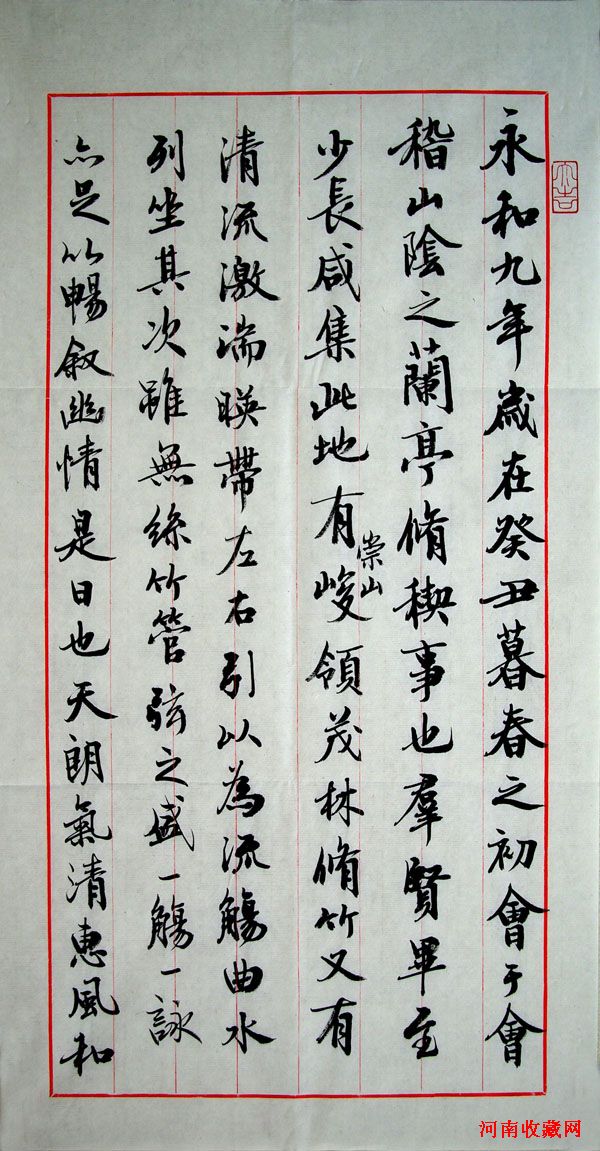 大吉
永和九年歲在癸丑暮春之初會于會
稽山陰之蘭亭脩稧事也羣賢畢至
少長咸集此地有崇山峻領茂林脩竹又有
清流激湍暎帶左右引以為流觴曲水
列坐其次雖無絲竹管弦之盛一觴一詠
亦足以暢敘幽情是日也天朗氣清惠風和
河南收藏网